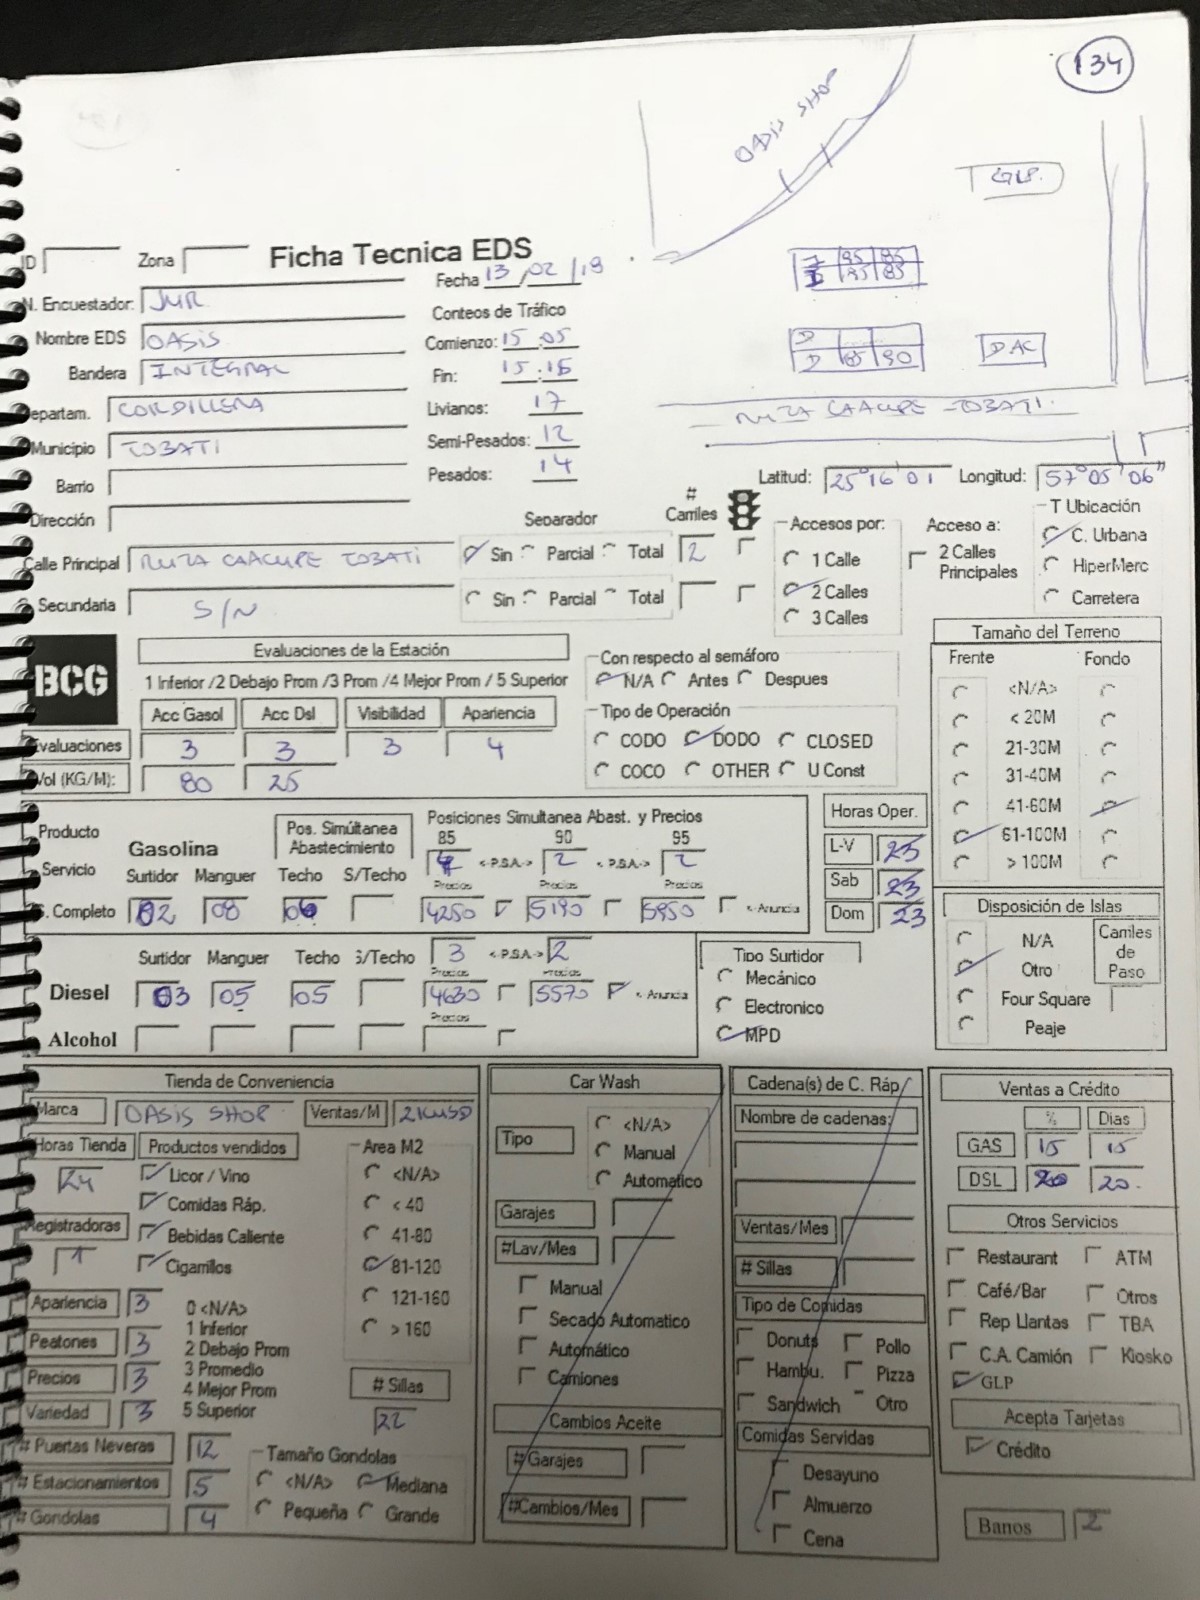 134
OASIS SHOP
GLP.
D 95 85
D 95 85
D
D 85 90
DAC
RUTA CAACUPE - TOBATI.
ID Zona Ficha Tecnica EDS
Fecha 13/02/19
N. Encuestador: JMR
Conteos de Tráfico
Nombre EDS OASIS
Comienzo: 15:05
Bandera INTEGRAL
Fin: 15:15
Departam. CORDILLERA
Livianos: 17
Municipio TOBATI
Semi-Pesados: 12
Barrio
Pesados: 14
Latitud: 25°16'01 Longitud: 57°05'06"
Dirección
Separador # Carriles
Accesos por: Acceso a: T Ubicación
Calle Principal RUTA CAACUPE TOBATI Sin Parcial Total 2
1 Calle 2 Calles Principales C. Urbana
2 Calles HiperMerc
Secundaria S/N Sin Parcial Total
3 Calles Carretera
BCG
Evaluaciones de la Estación
1 Inferior /2 Debajo Prom /3 Prom /4 Mejor Prom / 5 Superior
Acc Gasol Acc Dsl Visibilidad Apariencia
Evaluaciones 3 3 3 4
Vol (KG/M): 80 25
Con respecto al semáforo
N/A Antes Despues
Tipo de Operación
CODO DODO CLOSED
COCO OTHER U Const
Tamaño del Terreno
Frente Fondo
<N/A>
< 20M
21-30M
31-40M
41-60M
61-100M
> 100M
Producto
Servicio
Gasolina
Pos. Simúltanea Abastecimiento
Posiciones Simultanea Abast. y Precios
85 90 95
4 <-P.S.A-> 2 <-P.S.A-> 2
Surtidor Manguer Techo S/Techo Precios Precios Precios
S. Completo 02 08 06 4250 5190 5950 <- Anuncia
Horas Oper.
L-V 23
Sab 23
Dom 23
Surtidor Manguer Techo S/Techo 3 <-P.S.A-> 2
Precios Precios
Diesel 03 05 05 4630 5570 <- Anuncia
Precios
Alcohol
Tipo Surtidor
Mecánico
Electronico
MPD
Disposición de Islas
N/A
Otro
Four Square
Peaje
Carriles de Paso
Tienda de Conveniencia
Marca OASIS SHOP Ventas/M 21KUSD
Horas Tienda Productos vendidos Area M2
24 Licor / Vino <N/A>
Comidas Ráp. < 40
Registradoras Bebidas Caliente 41-80
1 Cigarrillos 81-120
Apariencia 3 0 <N/A> 121-160
1 Inferior > 160
Peatones 3 2 Debajo Prom
Precios 3 3 Promedio
4 Mejor Prom # Sillas
Variedad 3 5 Superior 22
# Puertas Neveras 12 Tamaño Gondolas
# Estacionamientos 5 <N/A> Mediana
# Gondolas 4 Pequeña Grande
Car Wash
Tipo <N/A>
Manual
Automatico
Garajes
#Lav/Mes
Manual
Secado Automatico
Automático
Camiones
Cambios Aceite
#Garajes
#Cambios/Mes
Cadena(s) de C. Ráp
Nombre de cadenas:
Ventas/Mes
# Sillas
Tipo de Comidas
Donuts Pollo
Hambu. Pizza
Sandwich Otro
Comidas Servidas
Desayuno
Almuerzo
Cena
Ventas a Crédito
% Dias
GAS 15 15
DSL 20 20.
Otros Servicios
Restaurant ATM
Café/Bar Otros
Rep Llantas TBA
C.A. Camión Kiosko
GLP
Acepta Tarjetas
Crédito
Banos 2